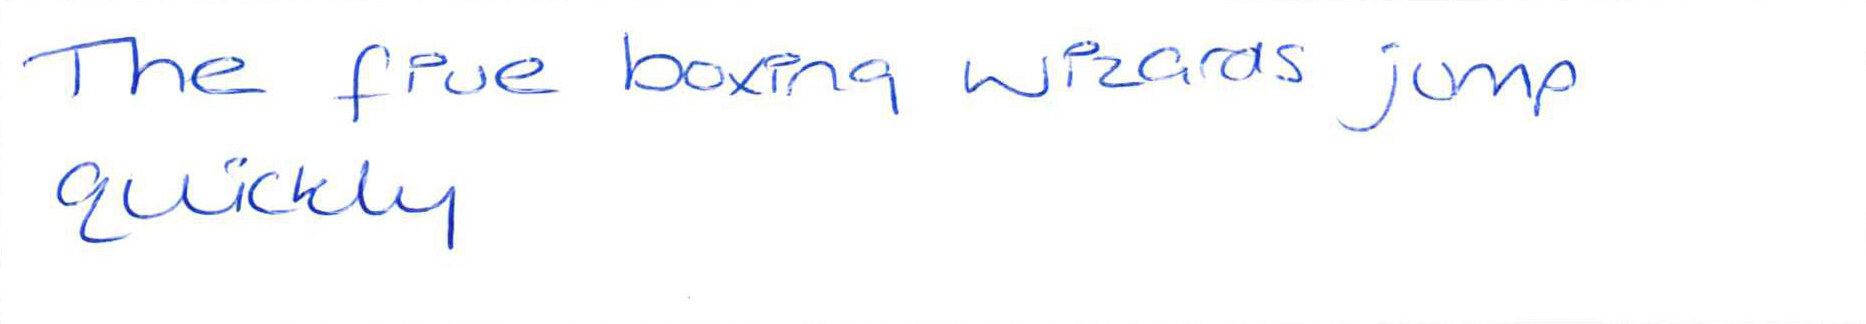 The five boxing wizards jump
quickly